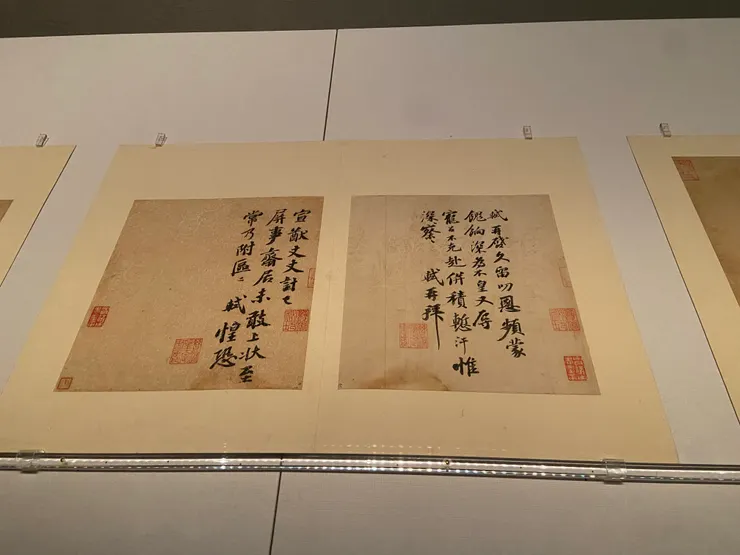 軾再啓久留叨恩頻蒙
餽餉深為不皇又辱
寵召不克赴併積慙汗惟
深察軾再拜
宣猷丈丈計已
屏事齋居未敢上狀至
常乃附區〻軾惶恐